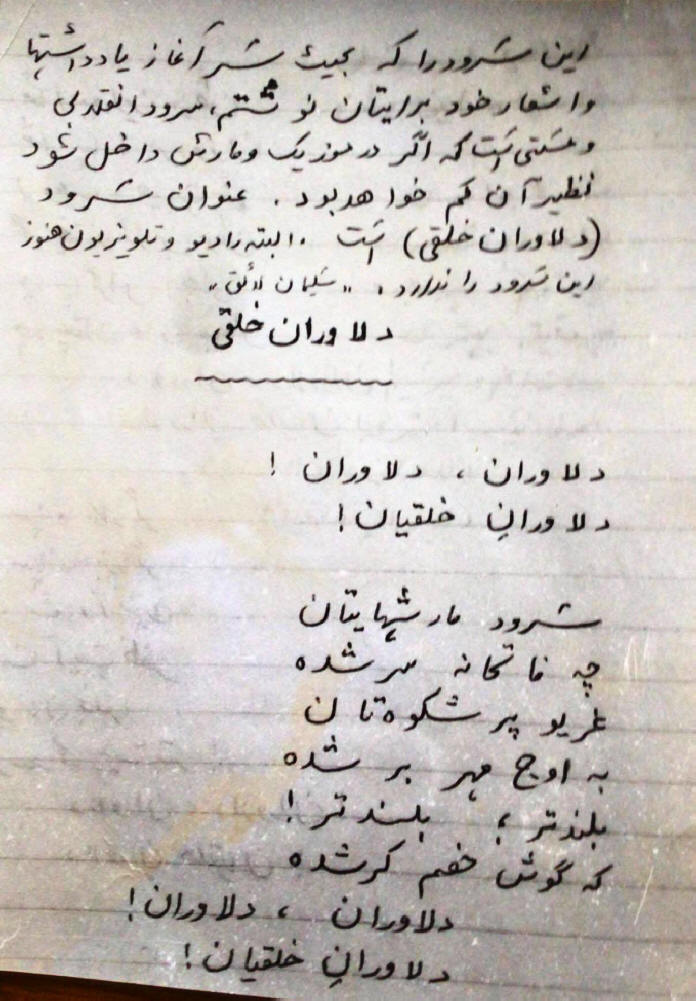 این سرود را که بحیث سر آغاز یادداشتها
و اشعار خود برایتان نوشتم، سرود انقلابی
و هستی است که اگر در موزیک و مارش داخل شود
نظیر آن کم خواهد بود. عنوان سرود
(دلاوران خلقی) است. البته رادیو و تلویزیون هنوز
این سرود را ندارد. "سلیمان لائق"
دلاوران خلقی
دلاوران، دلاوران!
دلاورانِ خلقیان!
سرود مارشهایتان
چه فاتحانه سر شده
غریو پر شکوه تان
به اوج مهر بر شده
بلندتر، بلندتر!
که گوش خصم کر شده
دلاوران، دلاوران!
دلاورانِ خلقیان!